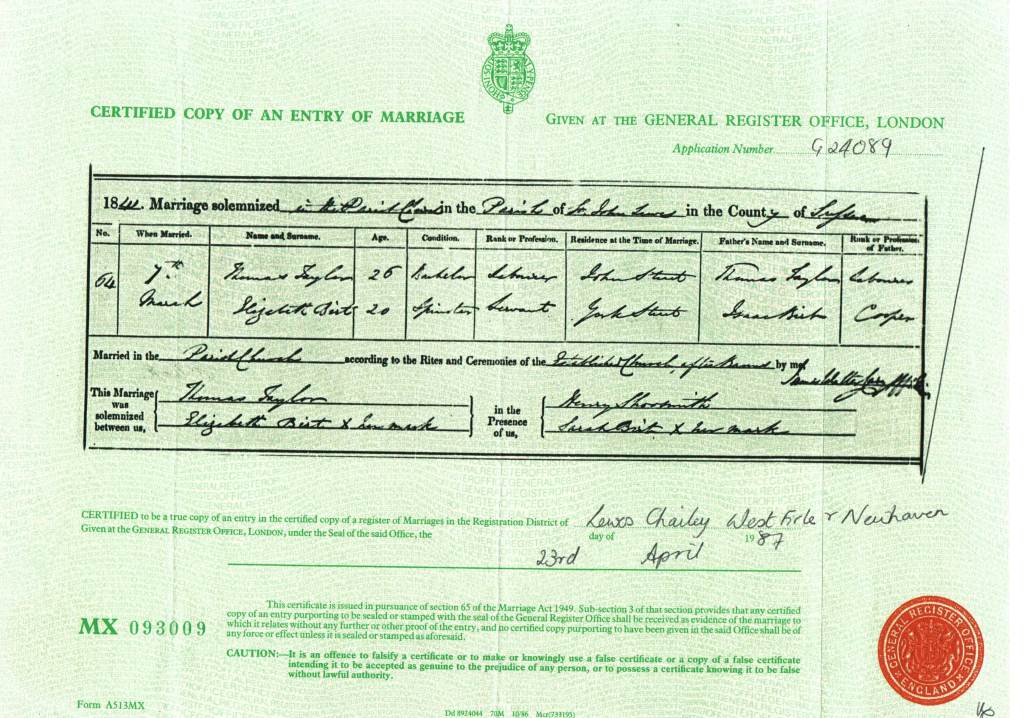 CERTIFIED COPY OF AN ENTRY OF MARRIAGE
GIVEN AT THE GENERAL REGISTER OFFICE, LONDON
Application Number G 24089
1844. Marriage solemnized in the Parish Church in the Parish of St. John Lewes in the County of Sussex
No. When Married. Name and Surname. Age. Condition. Rank or Profession. Residence at the Time of Marriage. Father's Name and Surname. Rank or Profession of Father.
64 7th Thomas Taylor 26 Bachelor Labourer John Street Thomas Taylor Labourer
March Elizabeth Birt 20 Spinster Servant York Street Isaac Birt Cooper
Married in the Parish Church according to the Rites and Ceremonies of the Established Church, after Banns by me,
This Marriage was solemnized between us, Thomas Taylor
Elizabeth Birt X her mark
in the Presence of us, Henry Shoosmith
Sarah Birt X her mark
CERTIFIED to be a true copy of an entry in the certified copy of a register of Marriages in the Registration District of Lewes Chailey West Firle & Newhaven
Given at the GENERAL REGISTER OFFICE, LONDON, under the Seal of the said Office, the 23rd day of April 1987
This certificate is issued in pursuance of section 65 of the Marriage Act 1949. Sub-section 3 of that section provides that any certified
copy of an entry purporting to be sealed or stamped with the seal of the General Register Office shall be received as evidence of the marriage to
which it relates without any further or other proof of the entry, and no certified copy purporting to have been given in the said Office shall be of
any force or effect unless it is sealed or stamped as aforesaid.
MX 093009
CAUTION:—It is an offence to falsify a certificate or to make or knowingly use a false certificate or a copy of a false certificate
intending it to be accepted as genuine to the prejudice of any person, or to possess a certificate knowing it to be false
without lawful authority.
GENERAL REGISTER OFFICE
ENGLAND
Form A513MX
Dd 8924044 70M 10/86 Mcr(733195)